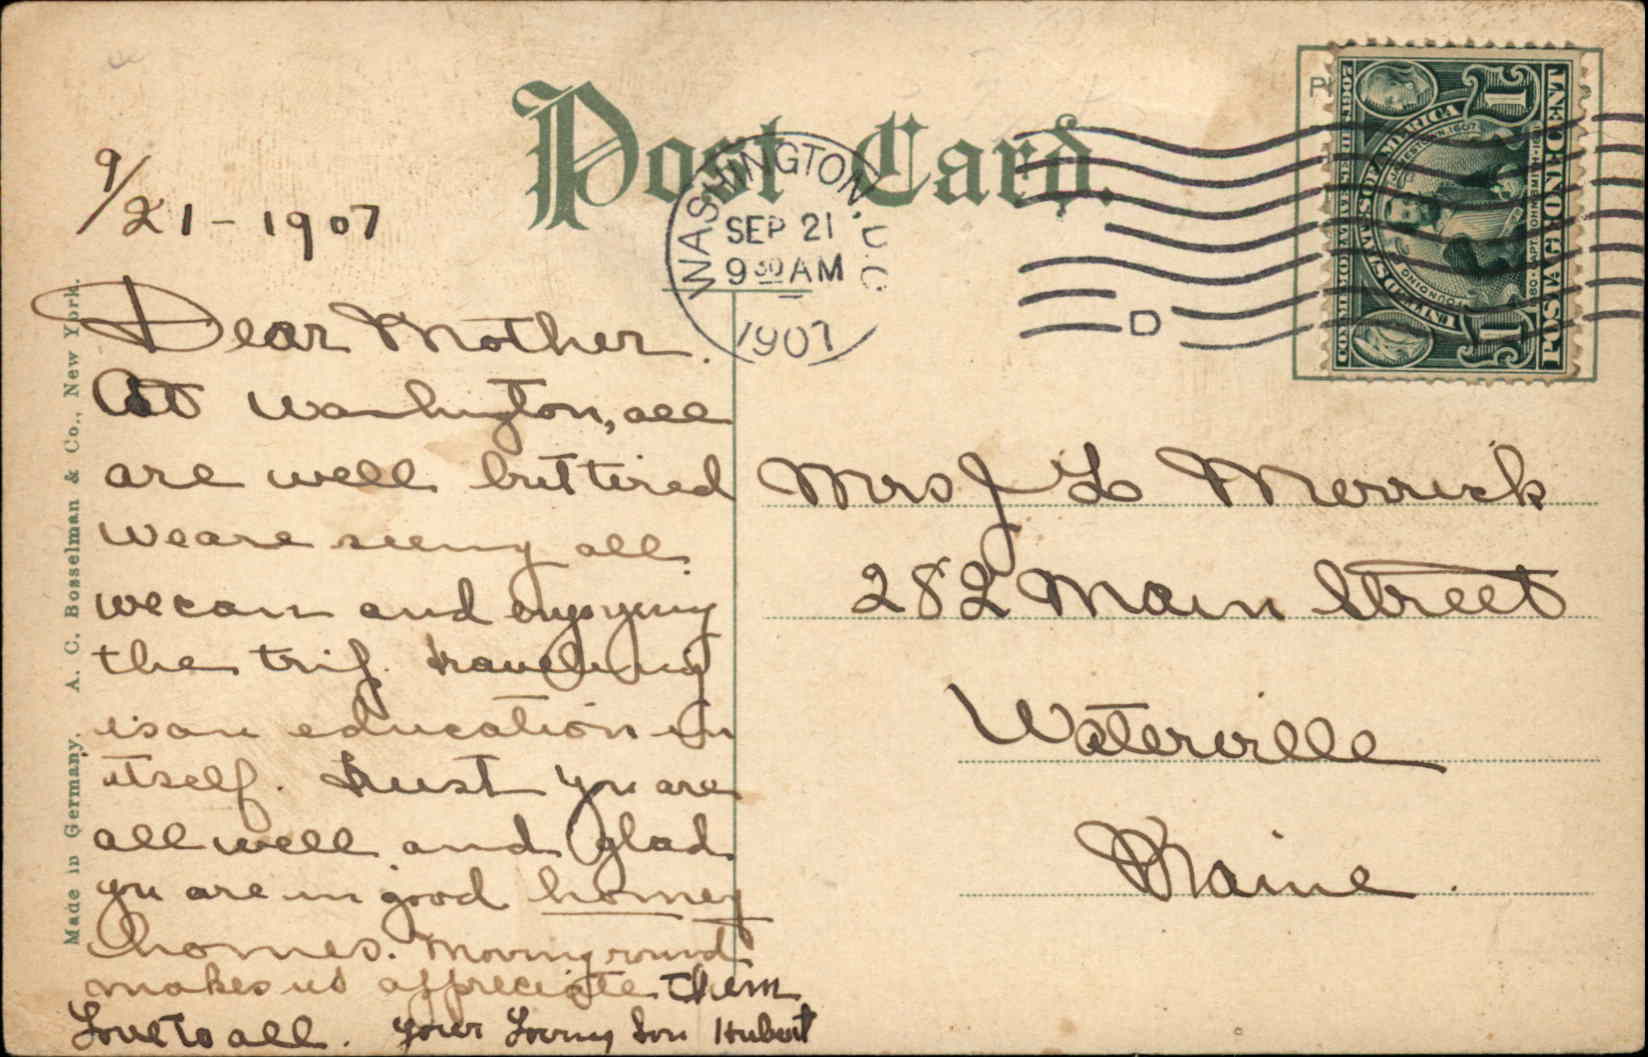 Post Card.
WASHINGTON, D.C.
SEP 21
9 30 AM
1907
D
COMMEMORATIVE SERIES OF 1907
UNITED STATES OF AMERICA
FOUNDING OF JAMESTOWN 1607
1580 · CAPT. JOHN SMITH · 1631
1 1
POSTAGE ONE CENT
Made in Germany. A. C. Bosselman & Co., New York.
9/21 - 1907
Dear Mother.
At Washington, all
are well but tired
we are seeing all.
we can and enjoying
the trip. traveling
is an education in
itself. trust you are
all well and glad
you are in good homey
homes. Moving round
makes us appreciate them
Love to all. Your Loving Son Hubert
Mrs J L Merrick
282 Main Street
Waterville
Maine.